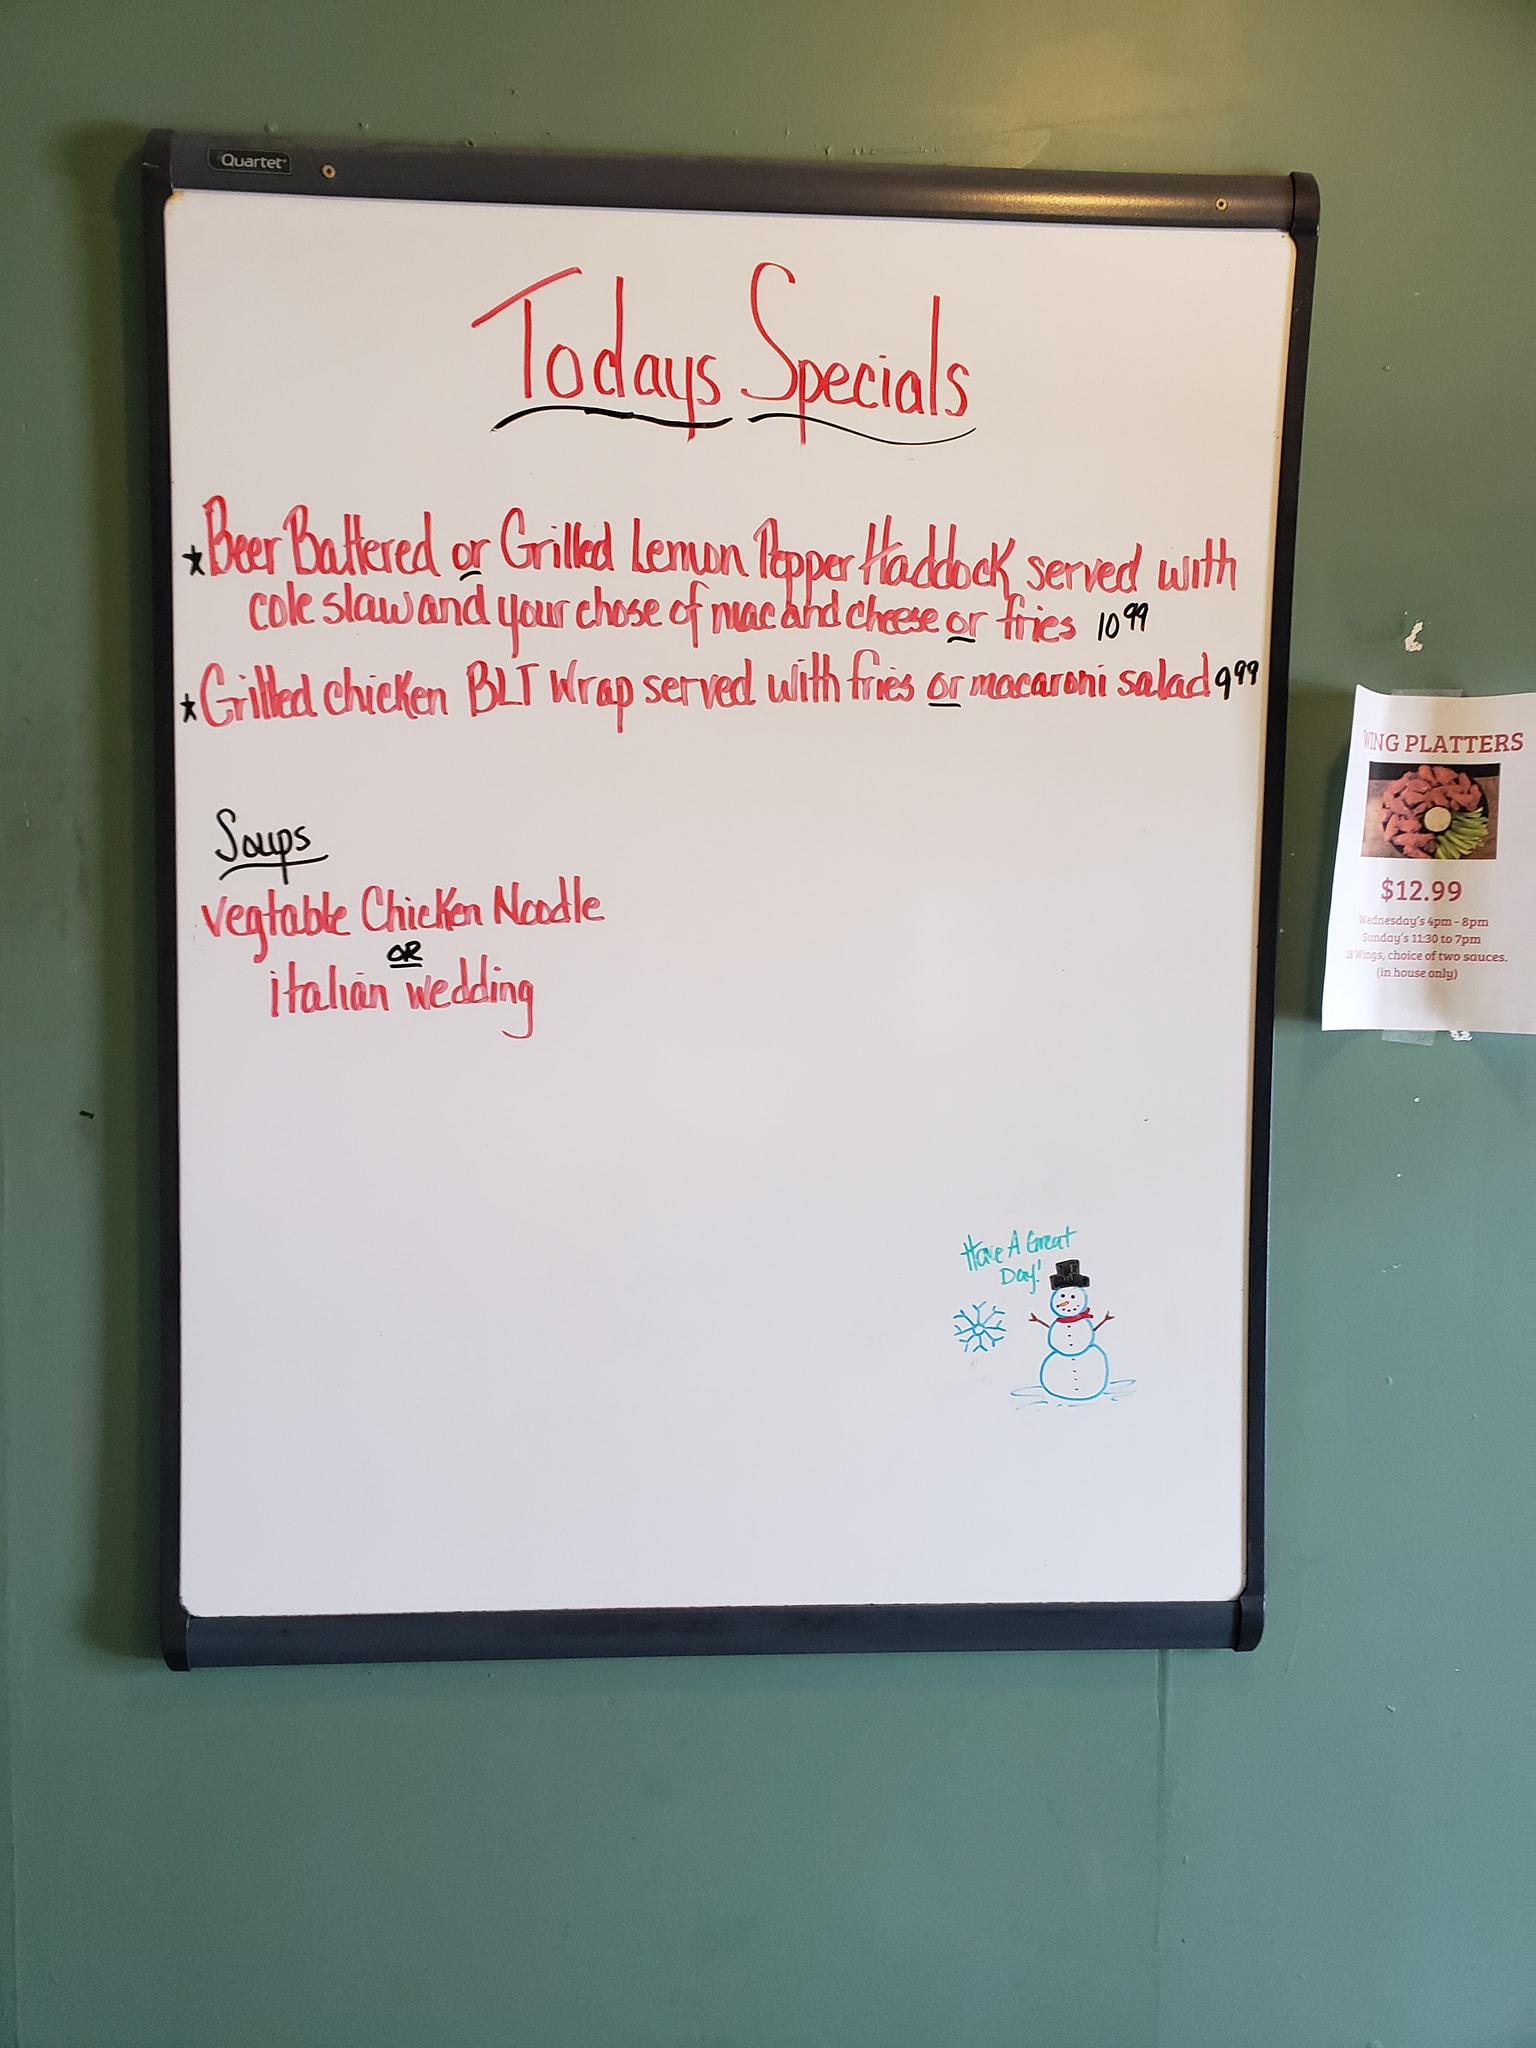 Quartet
Todays Specials
★Beer Battered or Grilled Lemon Pepper Haddock served with
cole slaw and your chose of mac and cheese or fries 10 99
★Grilled chicken BLT wrap served with fries or macaroni salad 9 99
Soups
vegtable Chicken Noodle
OR
italian wedding
Have A Great
Day!
WING PLATTERS
$12.99
Wednesday's 4pm - 8pm
Sunday's 11:30 to 7pm
18 Wings, choice of two sauces.
(in house only)